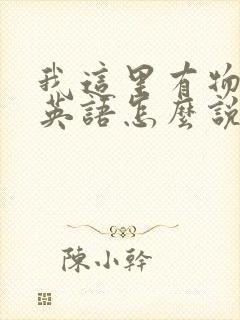 我這里有物
英語怎麼說
陳小幹